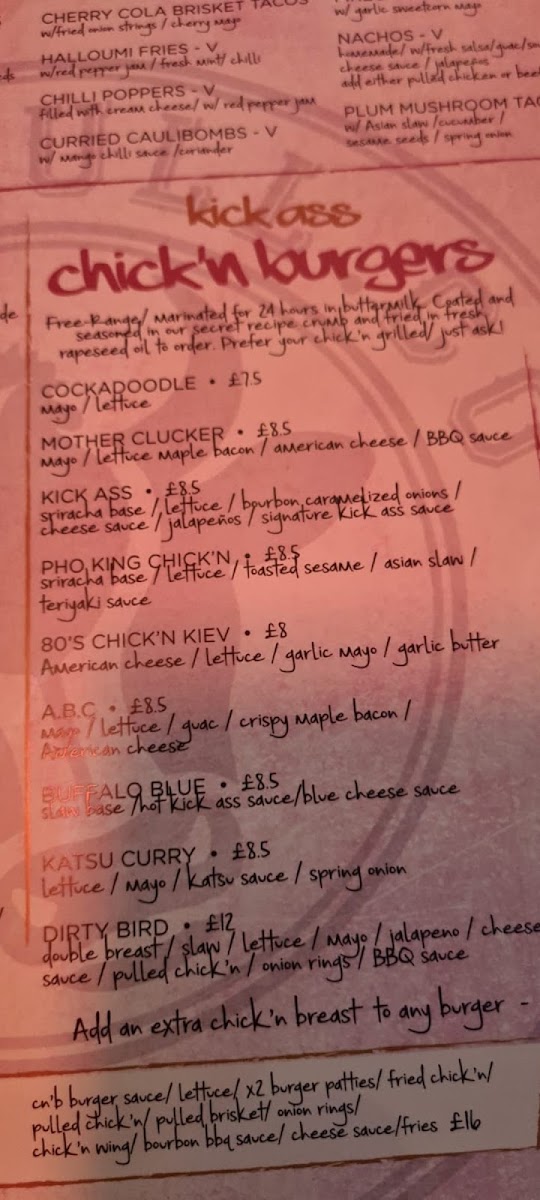 CHERRY COLA BRISKET TACOS
w/fried onion strings / cherry mayo
HALLOUMI FRIES - V
w/red pepper jam / fresh mint/ chilli
CHILLI POPPERS - V
filled with cream cheese/ w/ red pepper jam
CURRIED CAULIBOMBS - V
w/ mango chilli sauce /coriander
w/ garlic sweetcorn mayo
NACHOS - V
homemade/ w/fresh salsa/guac/
cheese sauce / jalapeños
add either pulled chicken or
PLUM MUSHROOM
w/ Asian slaw /cucumber /
sesame seeds / spring onion
kick ass
chick'n burgers
Free-Range/ Marinated for 24 hours in buttermilk. Coated and
seasoned in our secret recipe crumb and fried in fresh
rapeseed oil to order. Prefer your chick'n grilled/ just ask!
COCKADOODLE • £7.5
Mayo / lettuce
MOTHER CLUCKER • £8.5
Mayo / lettuce Maple bacon / american cheese / BBQ sauce
KICK ASS • £8.5
sriracha base / lettuce / bourbon caramelized onions /
cheese sauce / jalapeños / signature kick ass sauce
PHO KING CHICK'N • £8.5
sriracha base / lettuce / toasted sesame / asian slaw /
teriyaki sauce
80'S CHICK'N KIEV • £8
American cheese / lettuce / garlic mayo / garlic butter
A.B.C • £8.5
Mayo / lettuce / guac / crispy maple bacon /
American cheese
BUFFALO BLUE • £8.5
slaw base /hot kick ass sauce/blue cheese sauce
KATSU CURRY • £8.5
lettuce / mayo / katsu sauce / spring onion
DIRTY BIRD • £12
double breast / slaw / lettuce / mayo / jalapeno / cheese
sauce / pulled chick'n / onion rings / BBQ sauce
Add an extra chick'n breast to any burger -
cn'b burger sauce/ lettuce/ x2 burger patties/ fried chick'n/
pulled chick'n/ pulled brisket/ onion rings/
chick'n wing/ bourbon bbq sauce/ cheese sauce/fries £16